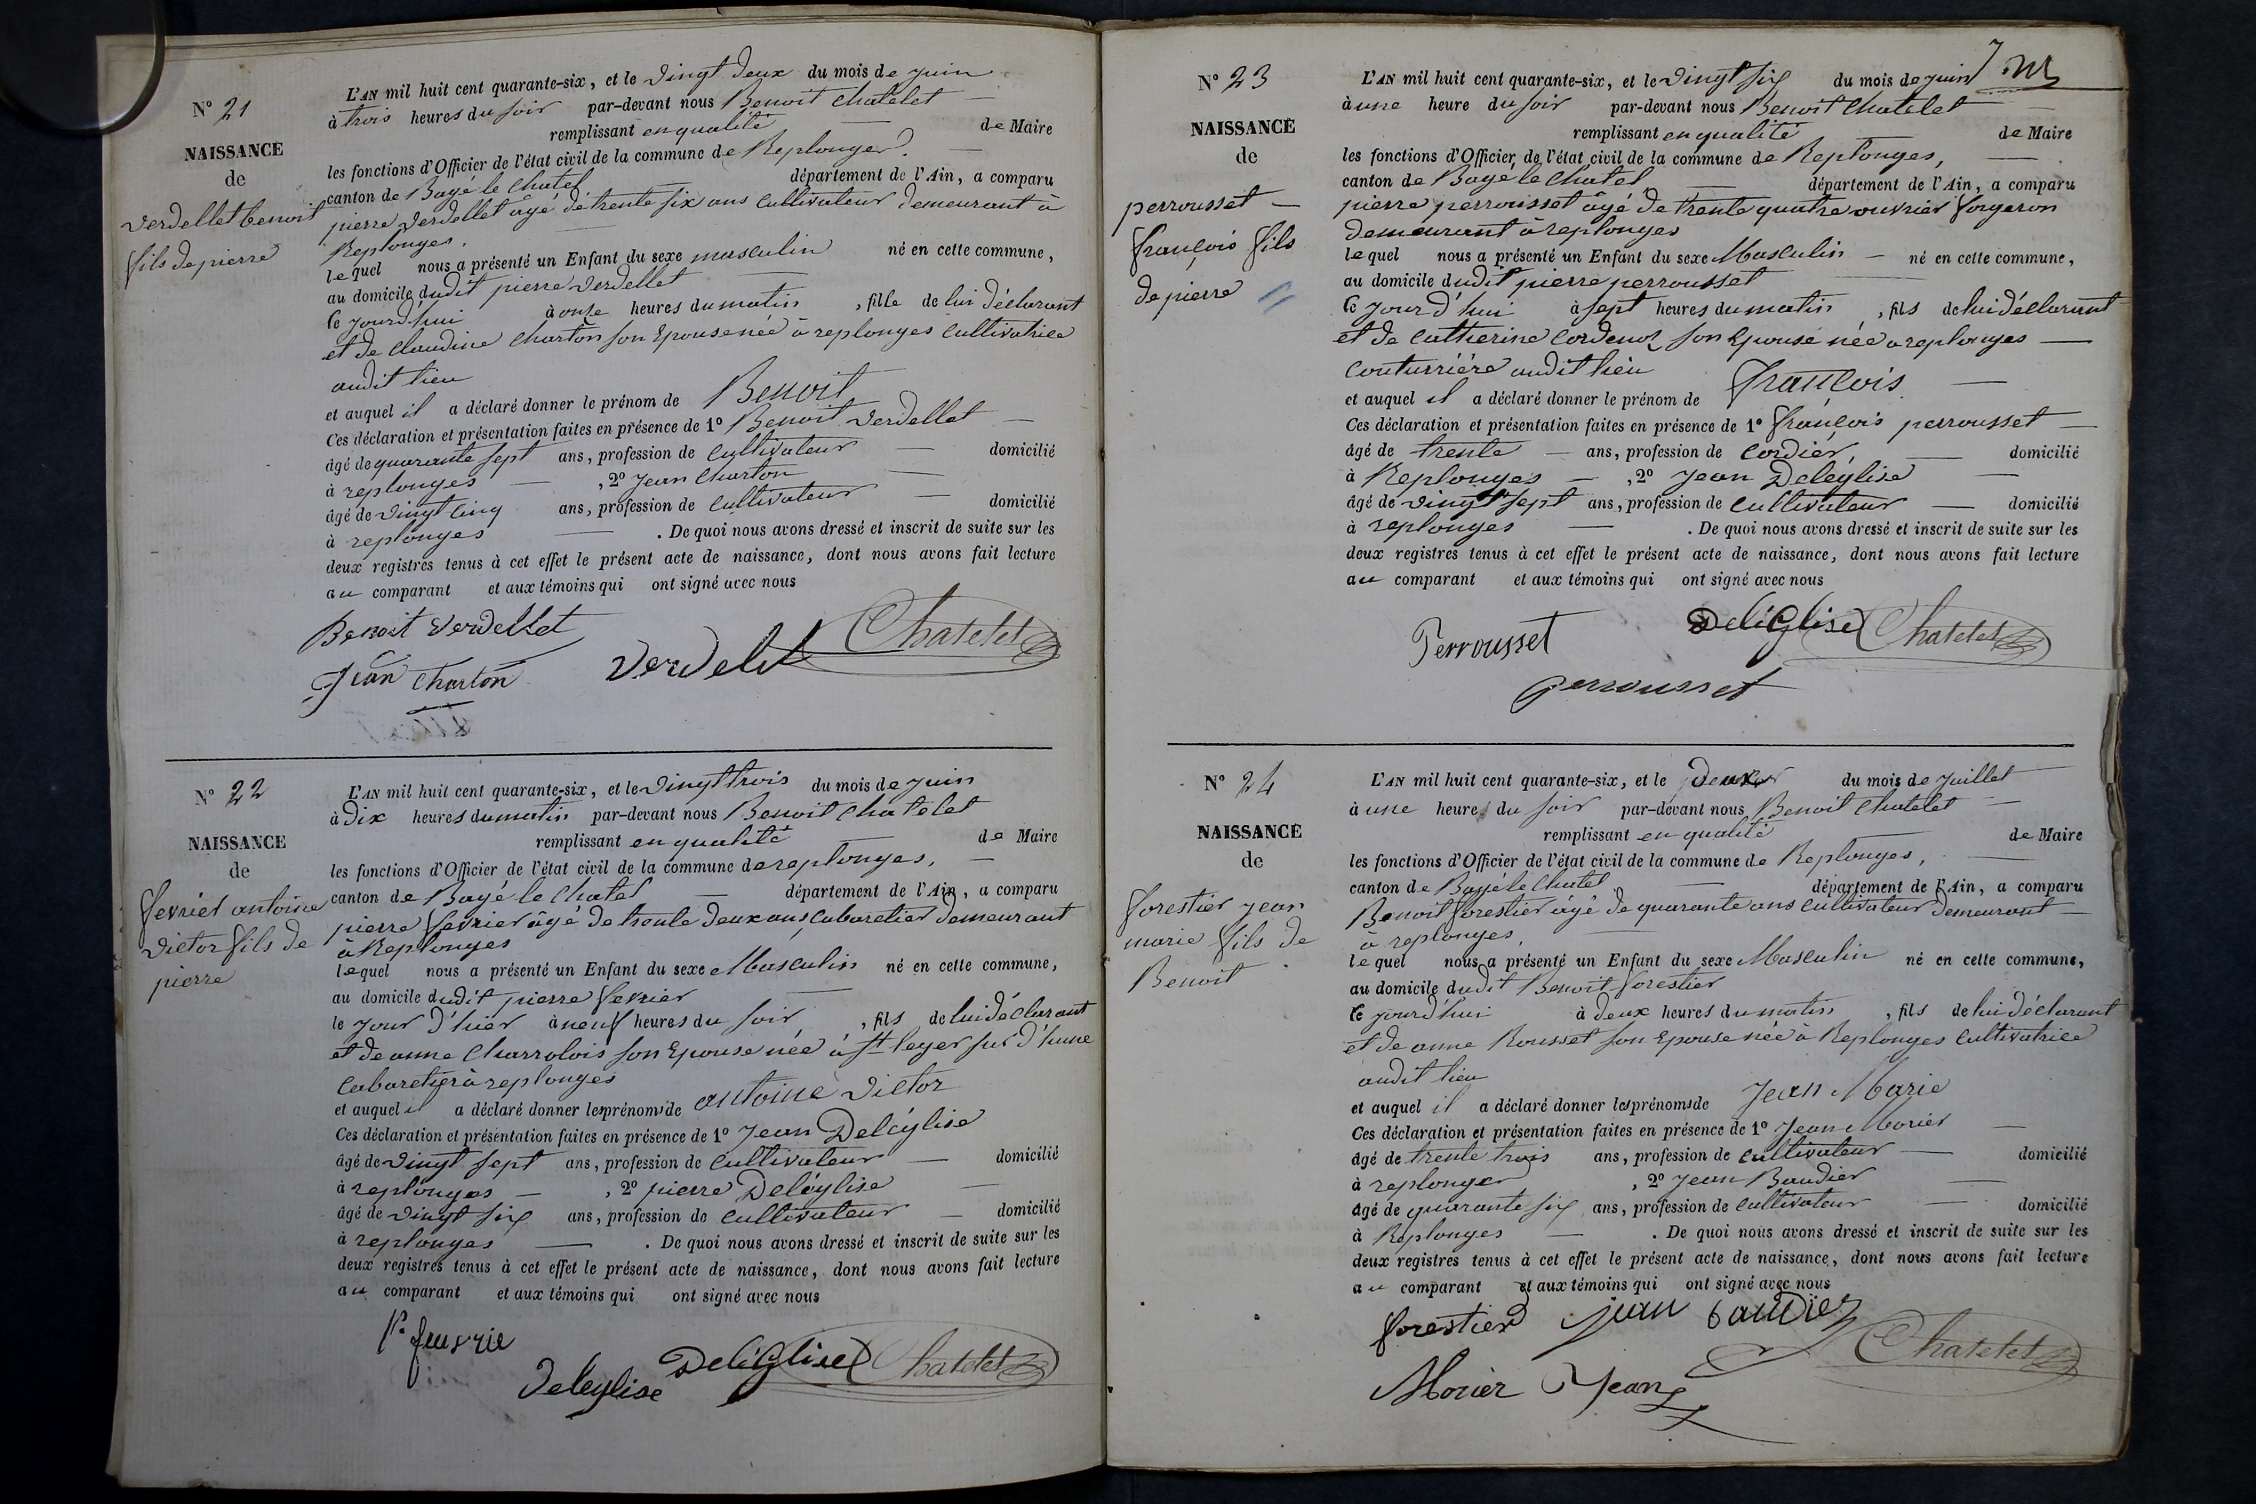 N° 21
NAISSANCE
de
Verdellet benoit
fils de pierre
L'AN mil huit cent quarante-six, et le vingt deux du mois de juin
à trois heures du soir par-devant nous Benoit Chatelet
remplissant en qualité de Maire
les fonctions d'Officier de l'état civil de la commune de Replonges.
canton de Bagé le Chatel département de l'Ain, a comparu
pierre Verdellet âgé de trente six ans cultivateur demeurant à
Replonges.
lequel nous a présenté un Enfant du sexe masculin né en cette commune,
au domicile dudit pierre Verdellet
ce jourd'hui à onze heures du matin, fille de lui déclarant
et de Claudine Charton son Epouse née à replonges cultivatrice
audit lieu
et auquel il a déclaré donner le prénom de Benoit
Ces déclaration et présentation faites en présence de 1° Benoit Verdellet
âgé de quarante sept ans, profession de cultivateur domicilié
à replonges, 2° Jean Charton
âgé de vingt cinq ans, profession de cultivateur domicilié
à replonges. De quoi nous avons dressé et inscrit de suite sur les
deux registres tenus à cet effet le présent acte de naissance, dont nous avons fait lecture
au comparant et aux témoins qui ont signé avec nous
Benoit Verdellet
Chatelet
Jean Charton
N° 22
NAISSANCE
de
fevrier antoine
victor fils de
pierre
L'AN mil huit cent quarante-six, et le vingt trois du mois de juin
à dix heures du matin par-devant nous Benoit Chatelet
remplissant en qualité de Maire
les fonctions d'Officier de l'état civil de la commune de replonges,
canton de Bagé le Chatel département de l'Ain, a comparu
pierre fevrier âgé de trente deux ans, cabaretier demeurant
à Replonges
lequel nous a présenté un Enfant du sexe Masculin né en cette commune,
au domicile dudit pierre fevrier
le jour d'hier à neuf heures du soir, fils de lui déclarant
et de anne Charrolois son Epouse née à St leger sur d'hune
cabaretier à replonges
et auquel il a déclaré donner les prénoms de antoine victor
Ces déclaration et présentation faites en présence de 1° Jean Deléglise
âgé de vingt sept ans, profession de cultivateur domicilié
à replonges, 2° pierre Deléglise
âgé de vingt six ans, profession de cultivateur domicilié
à replonges. De quoi nous avons dressé et inscrit de suite sur les
deux registres tenus à cet effet le présent acte de naissance, dont nous avons fait lecture
au comparant et aux témoins qui ont signé avec nous
Deléglise Chatelet
Deleglise
N° 23
NAISSANCE
de
perrousset
françois fils
de pierre
L'AN mil huit cent quarante-six, et le vingt six du mois de juin
à une heure du soir par-devant nous Benoit Chatelet
remplissant en qualité de Maire
les fonctions d'Officier de l'état civil de la commune de Replonges,
canton de Bagé le Chatel département de l'Ain, a comparu
pierre perrousset âgé de trente quatre ouvrier forgeron
demeurant à replonges
lequel nous a présenté un Enfant du sexe Masculin né en cette commune,
au domicile dudit pierre perrousset
ce jour d'hui à sept heures du matin, fils de lui déclarant
et de Catherine Cordenoz son Epouse née a replonges
couturrière audit lieu
et auquel il a déclaré donner le prénom de François
Ces déclaration et présentation faites en présence de 1° françois perrousset
âgé de trente ans, profession de cordier, domicilié
à Replonges, 2° Jean Deleglise
âgé de vingt sept ans, profession de cultivateur domicilié
à replonges. De quoi nous avons dressé et inscrit de suite sur les
deux registres tenus à cet effet le présent acte de naissance, dont nous avons fait lecture
au comparant et aux témoins qui ont signé avec nous
Deléglise Chatelet
Perrousset
perrousset
N° 24
NAISSANCE
de
forestier jean
marie fils de
Benoit
L'AN mil huit cent quarante-six, et le Deux du mois de juillet
à une heure du soir par-devant nous Benoit Chatelet
remplissant en qualité de Maire
les fonctions d'Officier de l'état civil de la commune de Replonges,
canton de Bagé le Chatel département de l'Ain, a comparu
Benoit forestier âgé de quarante ans cultivateur demeurant
à replonges,
lequel nous a présenté un Enfant du sexe Masculin né en cette commune,
au domicile dudit Benoit forestier
ce jourd'hui à deux heures du matin, fils de lui déclarant
et de anne Rousset son Epouse née à Replonges cultivatrice
audit lieu
et auquel il a déclaré donner les prénoms de Jean Marie
Ces déclaration et présentation faites en présence de 1° Jean Morier
âgé de trente trois ans, profession de cultivateur domicilié
à replonges, 2° Jean Baudier
âgé de quarante six ans, profession de cultivateur domicilié
à Replonges. De quoi nous avons dressé et inscrit de suite sur les
deux registres tenus à cet effet le présent acte de naissance, dont nous avons fait lecture
au comparant et aux témoins qui ont signé avec nous
forestier jean baudier
Chatelet
Morier Jean